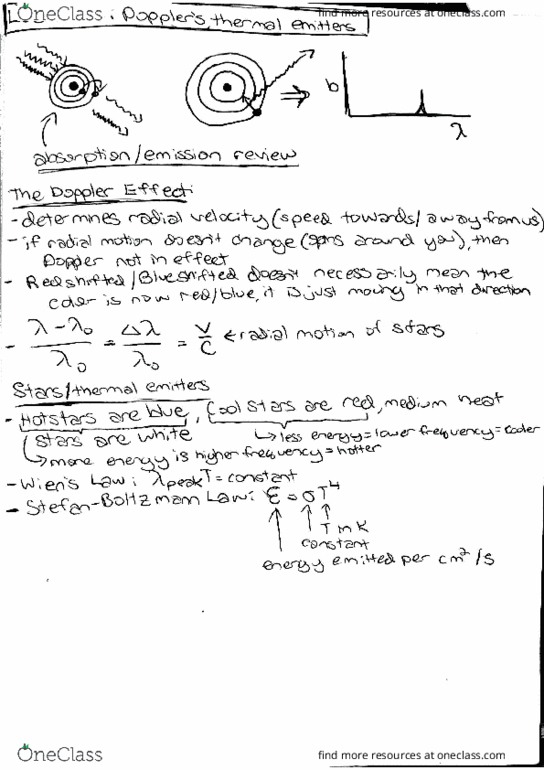 OneClass
find more resources at oneclass.com
: Doppler's, thermal emitters
b
λ
absorption/emission review
The Doppler Effect:
- determines radial velocity (speed towards/away from us)
- if radial motion doesn't change (spins around you), then
Doppler not in effect
- Redshifted/Blueshifted doesn't necessarily mean the
color is now red/blue, it is just moving in that direction
- λ-λ₀/λ₀ = Δλ/λ₀ = V/C ← radial motion of stars
Stars/thermal emitters
- Hot stars are blue, Cool stars are red, medium heat
stars are white
↳ less energy = lower frequency = cooler
↳ more energy is higher frequency = hotter
- Wien's Law: λpeakT = constant
- Stefan-Boltzmann Law: ε = σT⁴
T in K
constant
energy emitted per cm²/s
OneClass
find more resources at oneclass.com